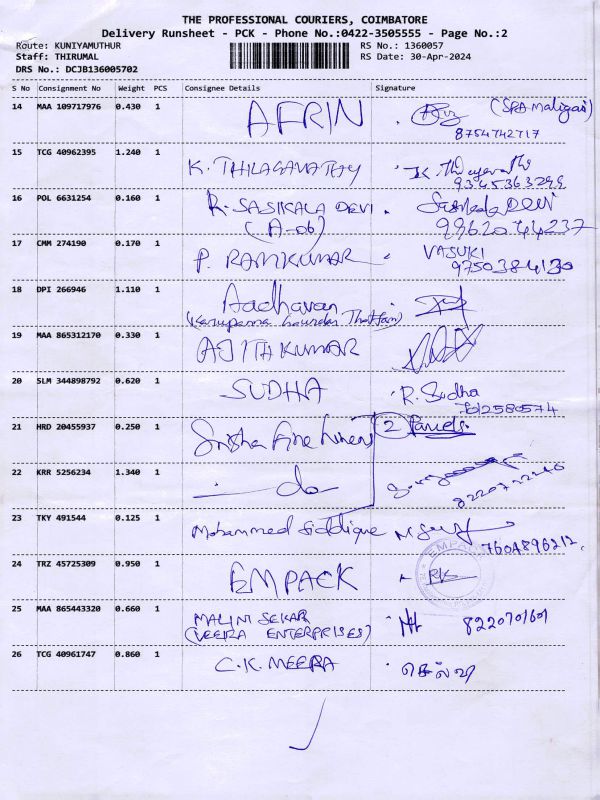 THE PROFESSIONAL COURIERS, COIMBATORE
Delivery Runsheet - PCK - Phone No.:0422-3505555 - Page No.:2
Route: KUNIYAMUTHUR RS No.: 1360057
Staff: THIRUMAL RS Date: 30-Apr-2024
DRS No.: DCJB136005702
S No Consignment No Weight PCS Consignee Details Signature
14 MAA 109717976 0.430 1 AFRIN (SRA Maligai)
8754742717
15 TCG 40962395 1.240 1 K. THILAGAVATHY
9345363299
16 POL 6631254 0.160 1 R. SASIKALA DEVI.
(A-06) 9962044237
17 CMM 274190 0.170 1 P. RAMKUMAR VASUKI
9750384130
18 DPI 266946 1.110 1 Aadhavan
19 MAA 865312170 0.330 1 AJITHKUMAR
20 SLM 344898792 0.620 1 SUDHA R. Sudha
21 HRD 20455937 0.250 1 2 Parcels.
22 KRR 5256234 1.340 1 do
23 TKY 491544 0.125 1 Mohammed Siddique
7604896212.
24 TRZ 45725309 0.950 1 EMPACK
25 MAA 865443320 0.660 1 MALINI SEKAR 8220701601
(VEERA ENTERPRISES)
26 TCG 40961747 0.860 1 C.K. MEERA செல்வி